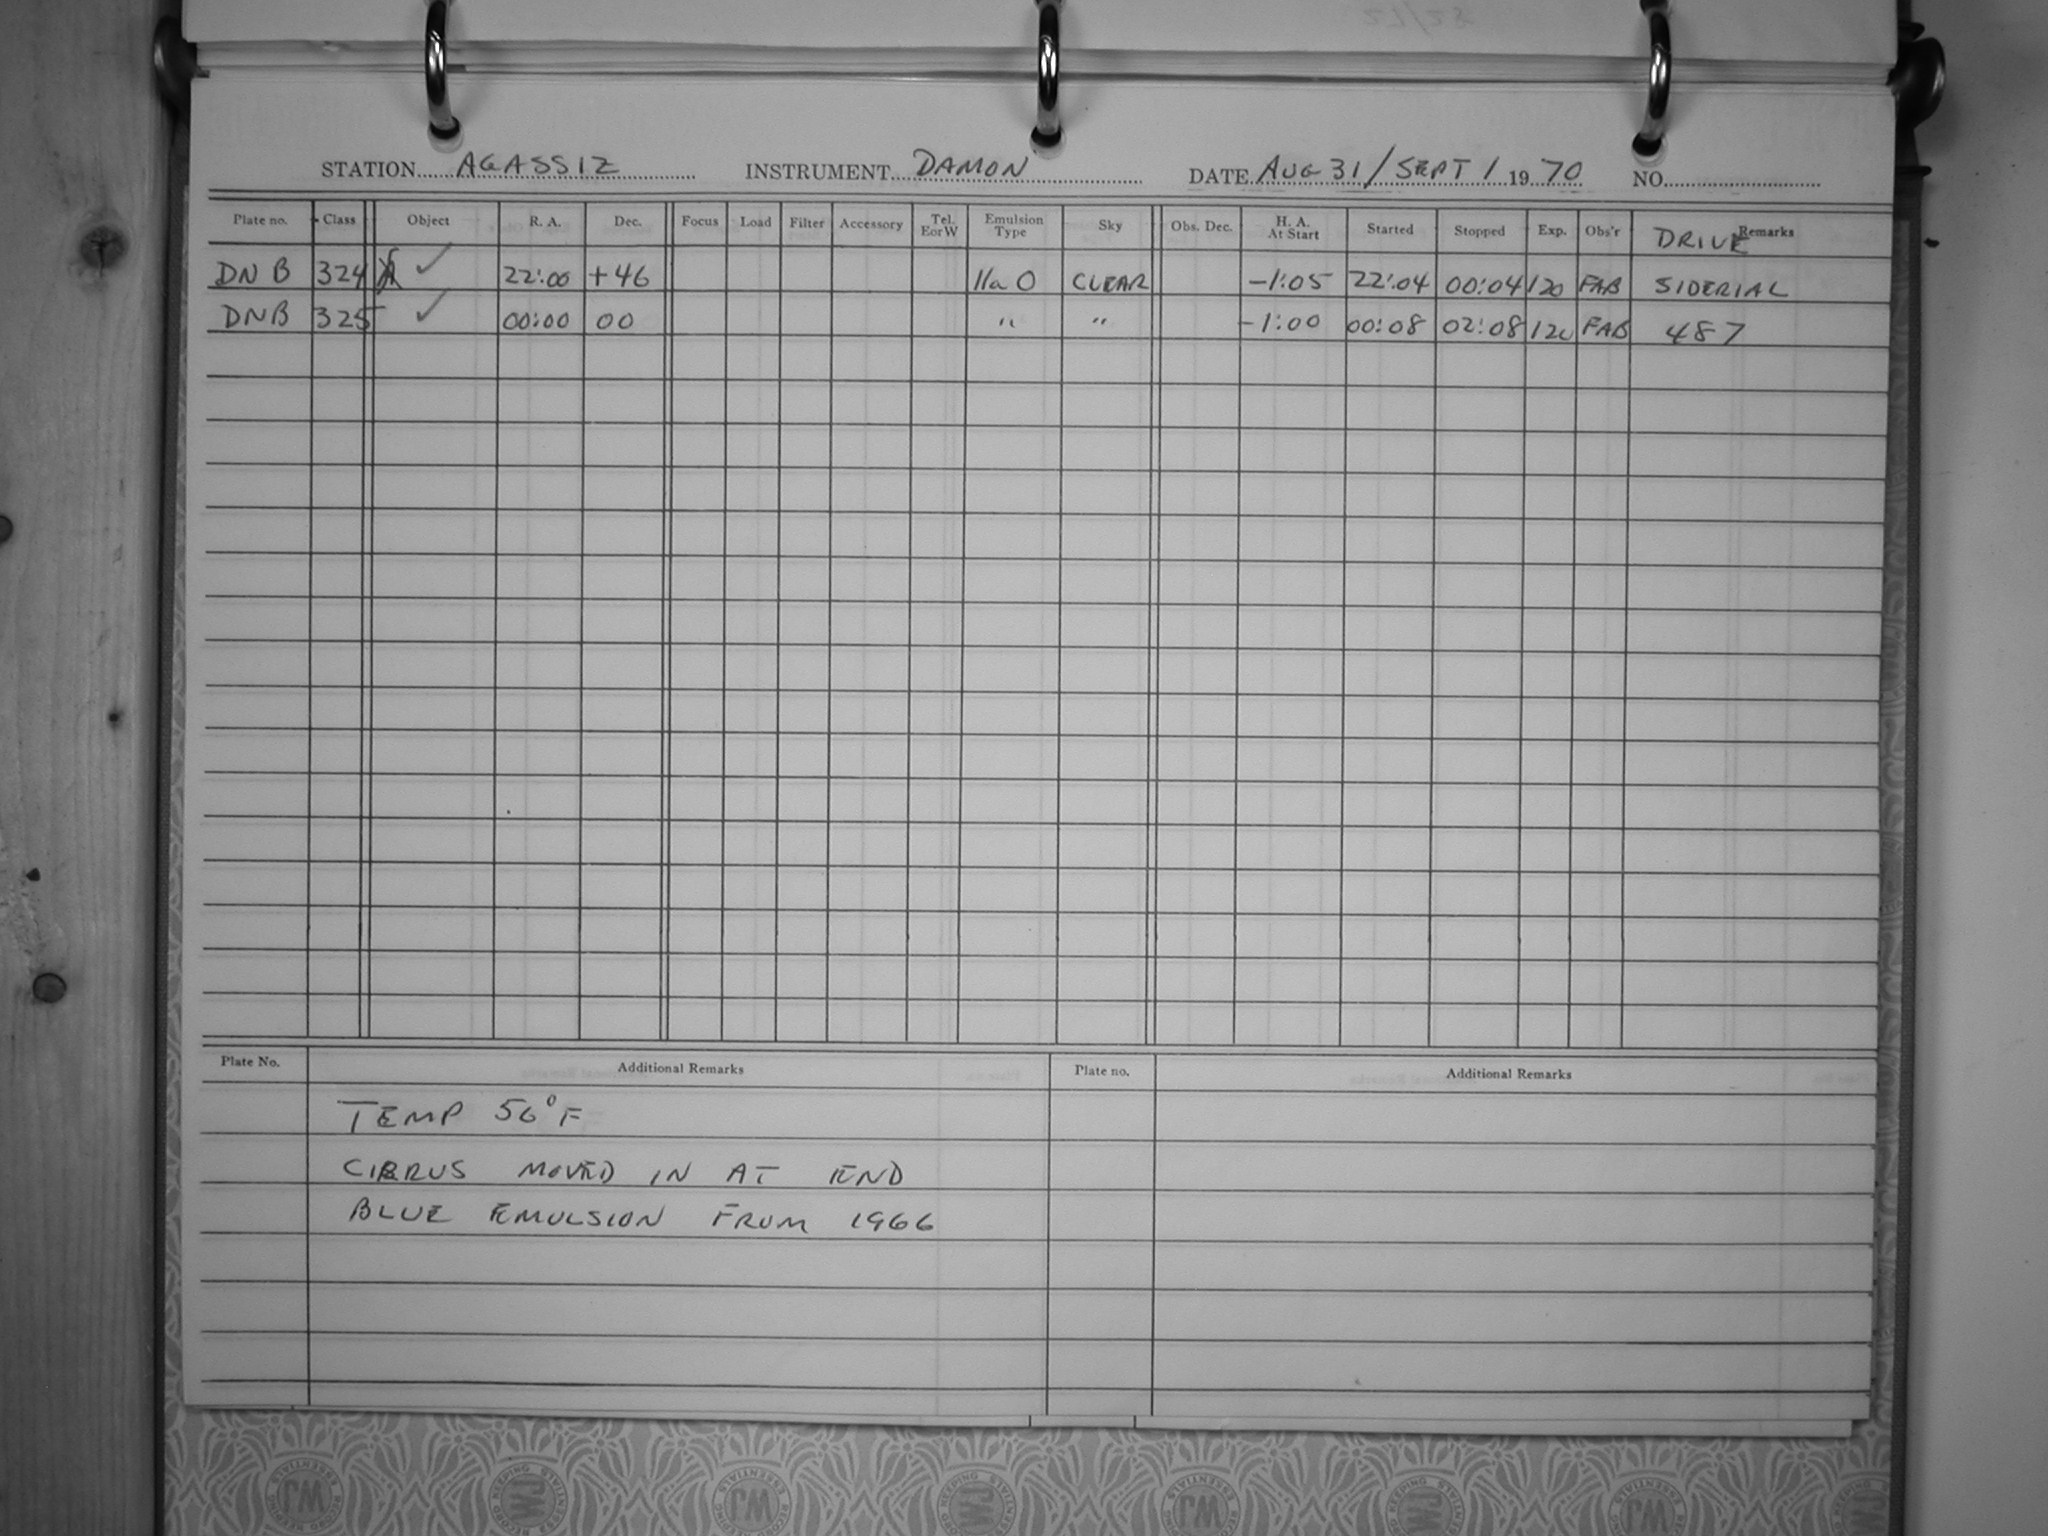 STATION AGASSIZ INSTRUMENT DAMON DATE AUG 31/SEPT 1 19 70 NO.
Plate no. Class Object R. A. Dec. Focus Load Filter Accessory Tel. E or W Emulsion Type Sky Obs. Dec. H. A. At Start Started Stopped Exp. Obs'r DRIVE Remarks
DNB 324 ✓ 22:00 +46 IIaO CLEAR -1:05 22:04 00:04 120 FAB SIDERIAL
DNB 325 ✓ 00:00 00 " " -1:00 00:08 02:08 120 FAB 487
Plate No. Additional Remarks Plate no. Additional Remarks
TEMP 56°F
CIRRUS MOVED IN AT END
BLUE EMULSION FROM 1966